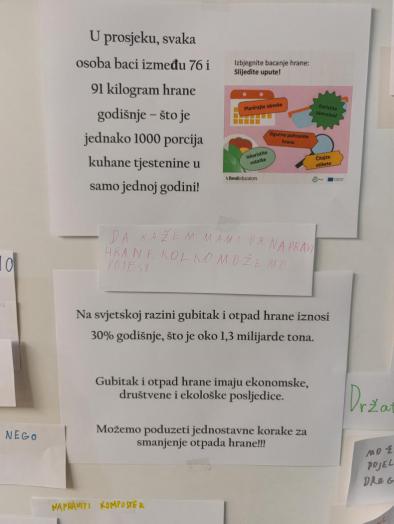 U prosjeku, svaka
osoba baci između 76 i
91 kilogram hrane
godišnje – što je
jednako 1000 porcija
kuhane tjestenine u
samo jednoj godini!
Izbjegnite bacanje hrane:
Slijedite upute!
Planirajte obroke
hrane
Čitajte
etikete
DA KAŽEM MAMI DA NAPRAVI
HRANE KOLKO MOŽEMO
POJESTI
Na svjetskoj razini gubitak i otpad hrane iznosi
30% godišnje, što je oko 1,3 milijarde tona.
Gubitak i otpad hrane imaju ekonomske,
društvene i ekološke posljedice.
Možemo poduzeti jednostavne korake za
smanjenje otpada hrane!!!
NEGO
NAPRAVITI KOMPOSTER